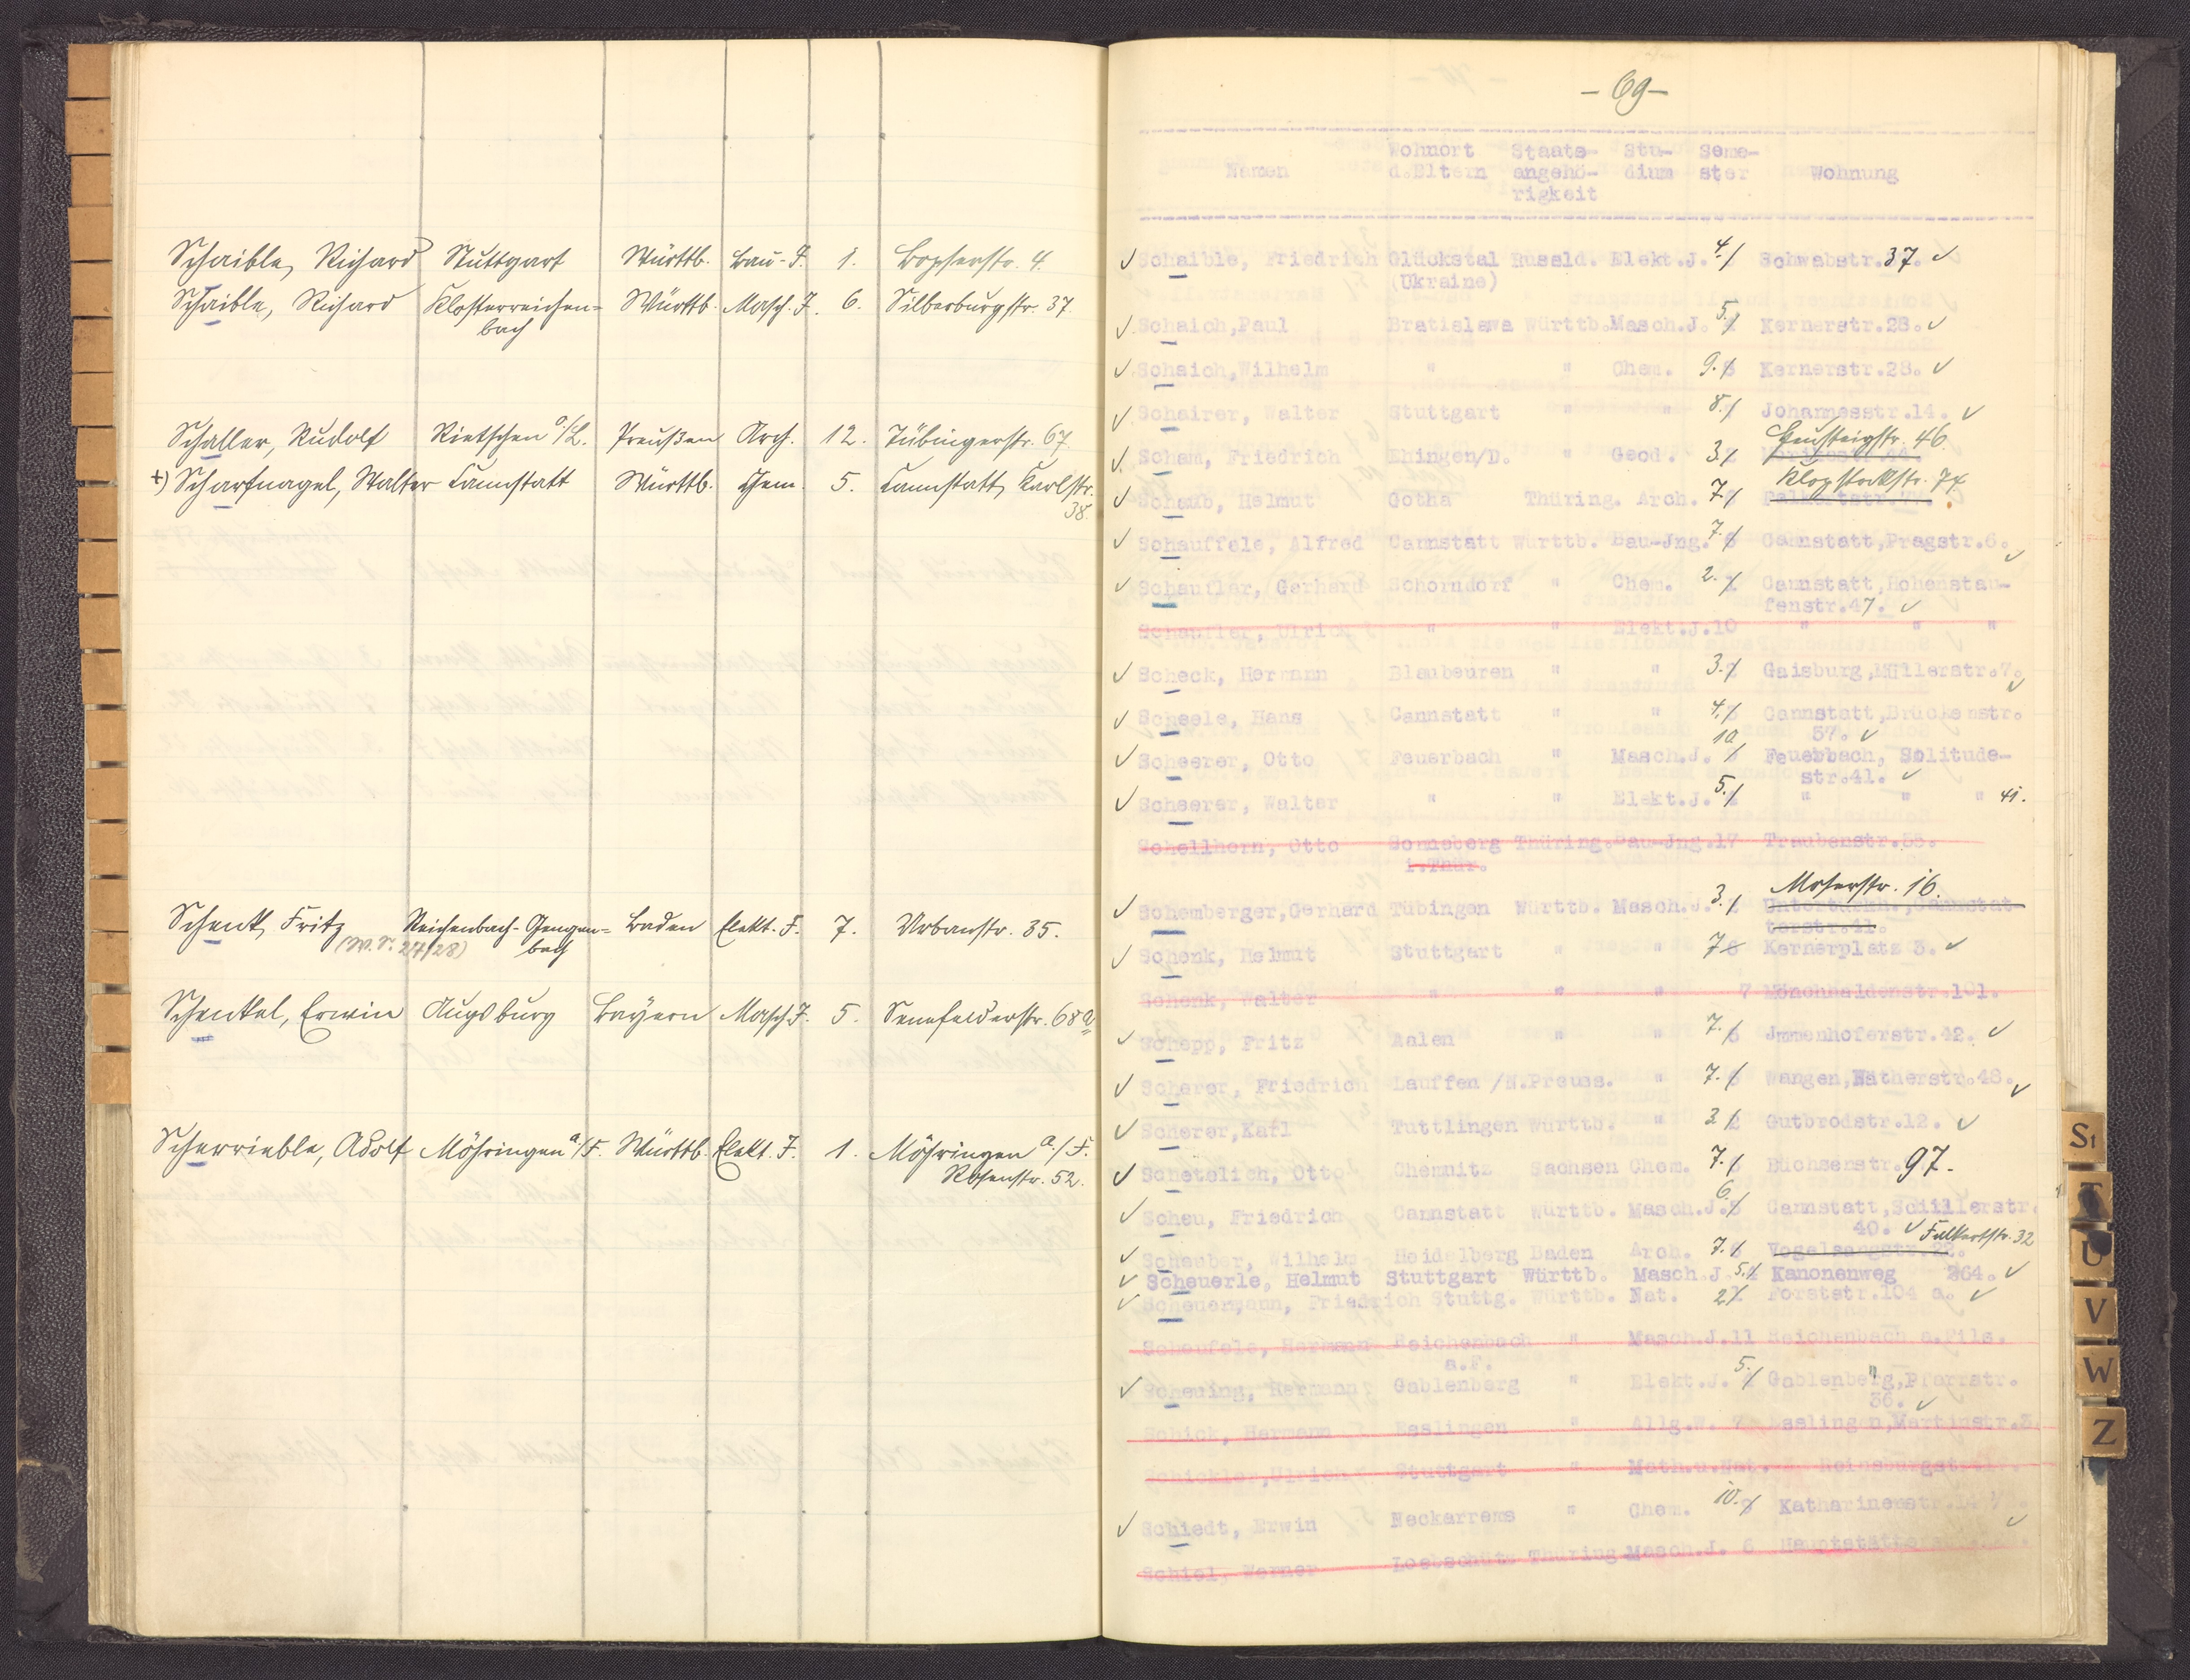 Schaible, Richard Stuttgart Württb. Bau-J. 1. Bopserstr. 4.
Schaible, Richard Klosterreichen= Württb. Masch. J. 6. Silberburgstr. 37
bach
Schaller, Rudolf Rietschen O/L. Preußen Arch. 12. Tübingerstr. 67
+) Scharfnagel, Walter Cannstatt Württb. Chem. 5. Cannstatt, Karlstr.
38.
Schenk, Fritz Reichenbach-Gengen= Baden Elekt. J. 7. Urbanstr. 35.
(W.S. 27/28) bach
Schenkel, Erwin Augsburg Bayern Masch. J. 5. Senefelderstr. 68 a
Scherrieble, Adolf Möhringen a/F. Württb. Elekt. J. 1. Möhringen a./F.
Rosenstr. 52.
- 69 -
Wohnort Staats- Stu- Seme-
Namen d.Eltern angehö- dium ster Wohnung
rigkeit
Schaible, Friedrich Glückstal Russld. Elekt.J. 4. Schwabstr. 37. ✓
(Ukraine)
Schaich, Paul Bratislawa Württb. Masch.J. 5. Kernerstr.28. ✓
Schaich, Wilhelm " " Chem. 9. Kernerstr.28. ✓
Schairer, Walter Stuttgart " " 8. Johannesstr.14. ✓
Scham, Friedrich Ehingen/D. " Geod. 3. 46
Klopstockstr. 74
Schaub, Helmut Gotha Thüring. Arch. 7. Falkertstr.77.
Schauffele, Alfred Cannstatt Württb. Bau-Jng. 7. Cannstatt, Pragstr.6.
Schaufler, Gerhard Schorndorf " Chem. 2. Cannstatt, Hohenstau-
fenstr.47. ✓
Schaufler, Ulrich " " Elekt.J.10 " " "
Scheck, Hermann Blaubeuren " " 3. Gaisburg, Müllerstr.7.
Scheele, Hans Cannstatt " " 4. Cannstatt, Brückenstr.
57. ✓
Scheerer, Otto Feuerbach " Masch.J. 10 Feuerbach, Solitude-
str.41. ✓
Scheerer, Walter " " Elekt.J. 5. " " " 41.
Schellhorn, Otto Sonneberg Thüring. Bau-Jng.17 Traubenstr.55.
i.Thür.
Moserstr. 16.
Schemberger, Gerhard Tübingen Württb. Masch.J. 3. Untertürkh., Cannstat-
terstr.41.
Schenk, Helmut Stuttgart " " 7 Kernerplatz 3. ✓
Schenk, Walter " " " 7 Mönchhaldenstr.101.
Schepp, Fritz Aalen " " 7. Jmmenhoferstr.42. ✓
Scherer, Friedrich Lauffen /N. Preuss. " 7. Wangen, Nätherstr.48.
Scherer, Karl Tuttlingen Württb. " 3 Gutbrodstr.12. ✓
Schetelich, Otto Chemnitz Sachsen Chem. 7. Büchsenstr. 97.
Scheu, Friedrich Cannstatt Württb. Masch.J. 6. Cannstatt, Schillerstr.
40. ✓ Falkertstr. 32
Scheuber, Wilhelm Heidelberg Baden Arch. 7. Vogelsangstr.22.
Scheuerle, Helmut Stuttgart Württb. Masch.J. 5. Kanonenweg 264. ✓
Scheuermann, Friedrich Stuttg. Württb. Nat. 2 Forststr.104 a. ✓
Scheufele, Hermann Reichenbach " Masch.J.11 Reichenbach a.Fils.
a.F.
Scheuing, Hermann Gablenberg " Elekt.J. 5. Gablenberg, Pfarrstr.
36. ✓
Schick, Hermann Esslingen " Allg.W. 7 Esslingen, Martinstr.3.
Schickler, Ulrich Stuttgart " Math.u.Nat. Reinsburgstr.
Schiedt, Erwin Neckarrems " Chem. 10. Katharinenstr.
Schiel, Werner Thüring Masch.J. 6
St
T
U
V
W
Z